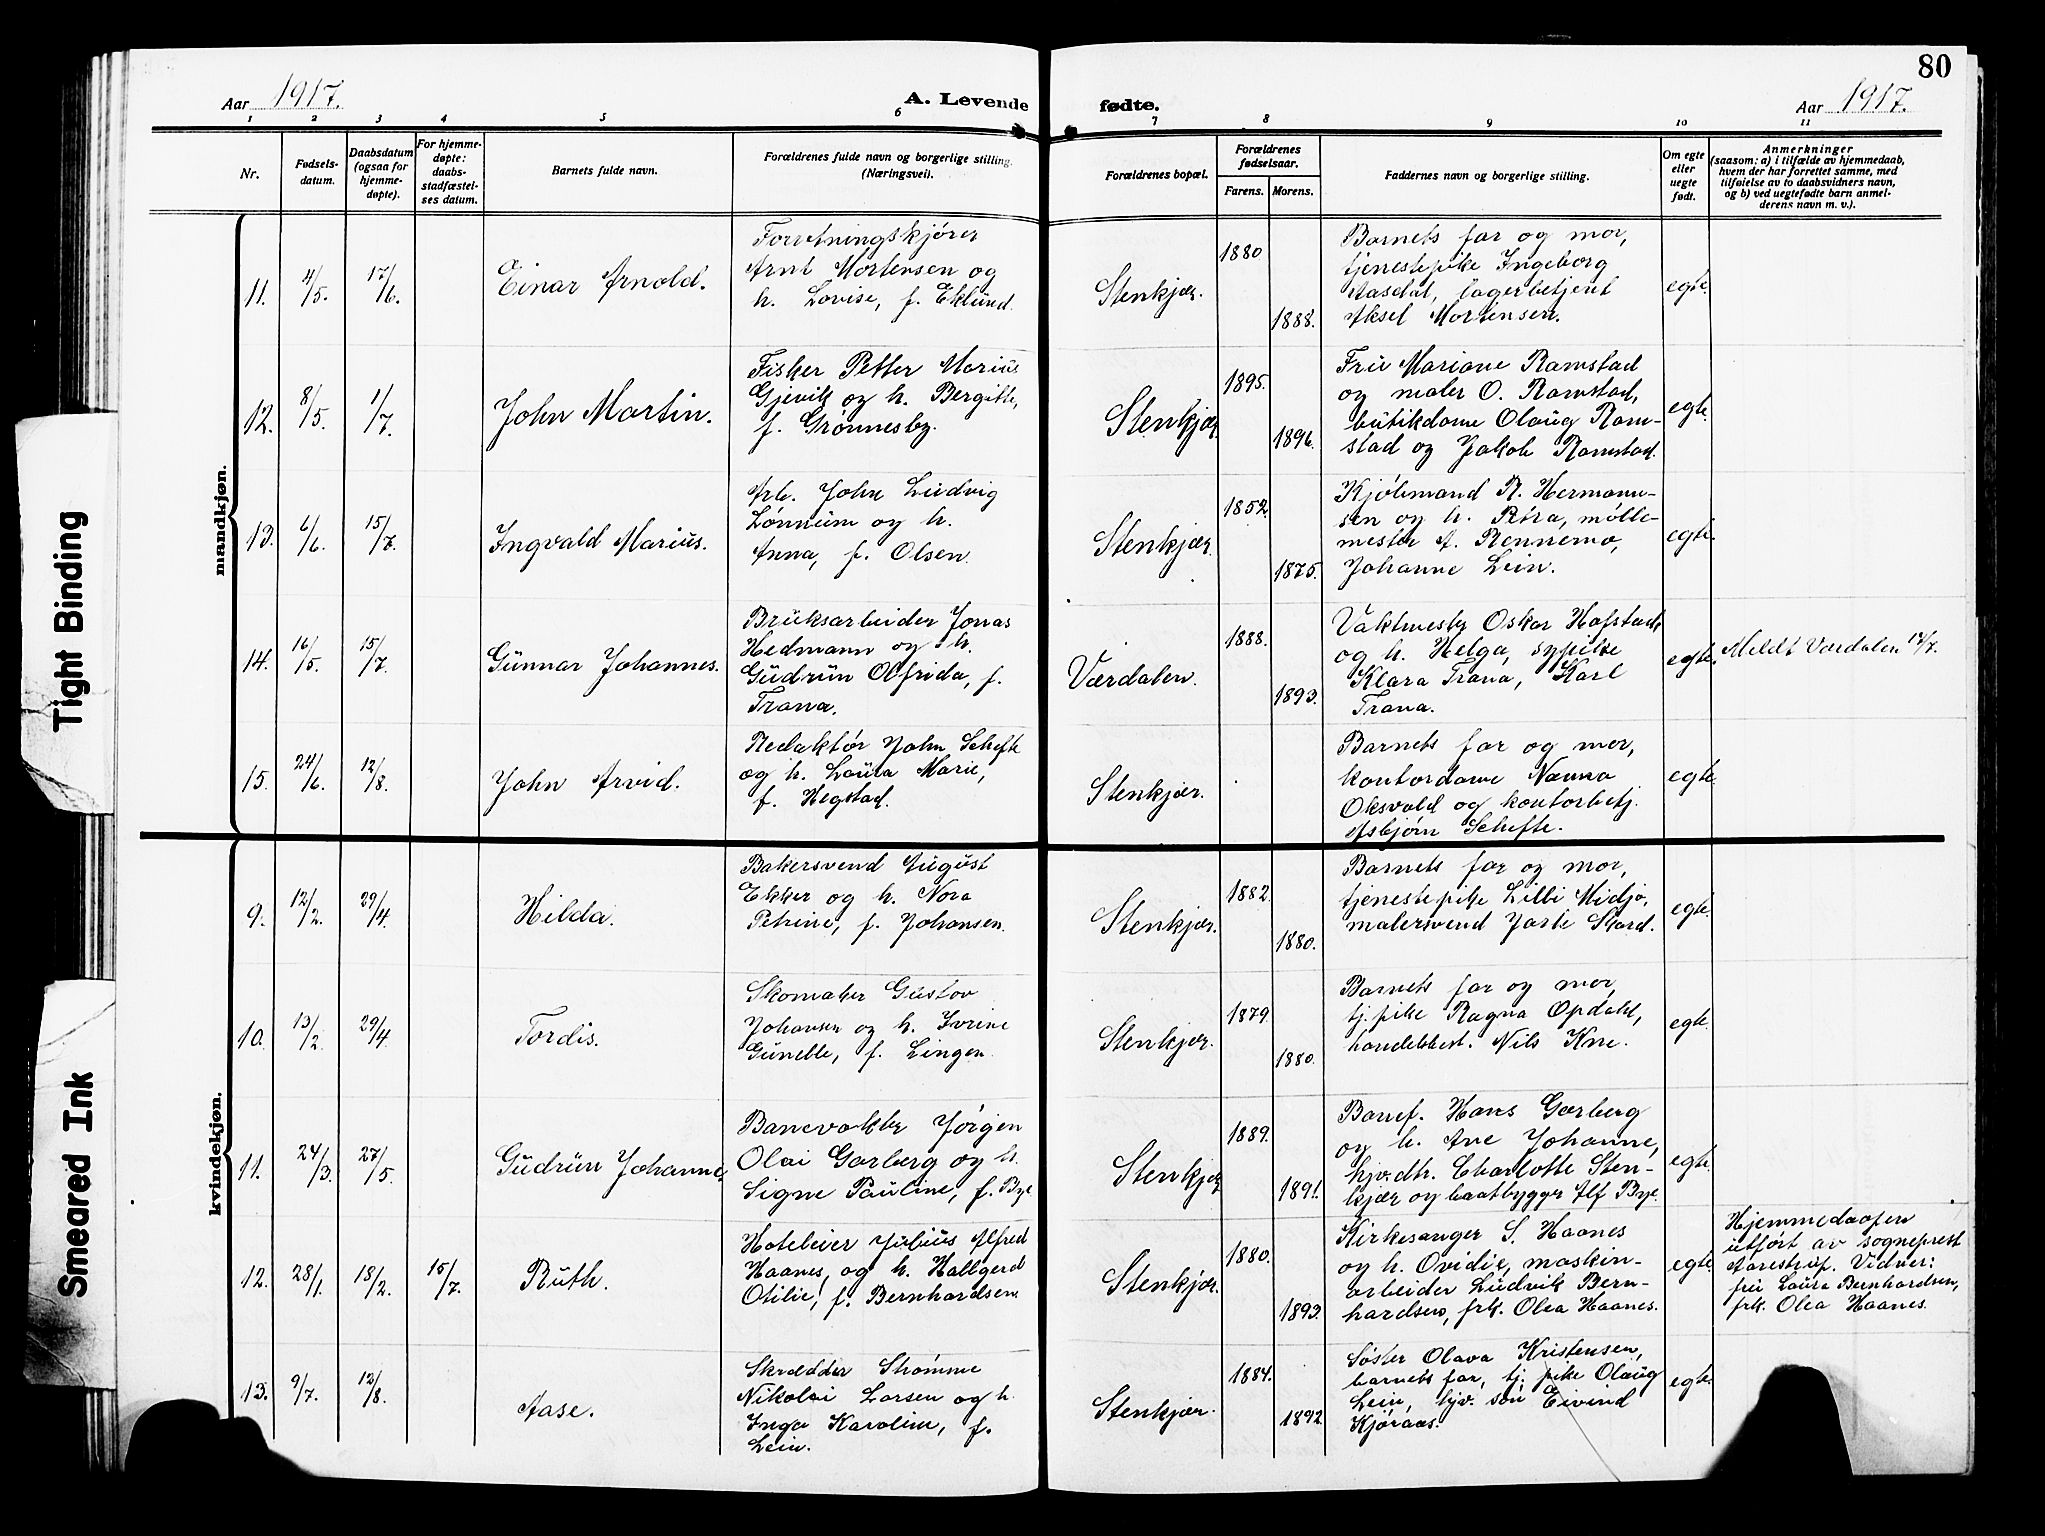 80
Aar 1917. A. Levende fødte. Aar 1917.
1 2 3 4 5 6 7 8 9 10 11
Nr.
Fødsels-
datum.
Daabsdatum
(ogsaa for
hjemme-
døpte).
For hjemme-
døpte:
daabs-
stadfæstel-
ses datum.
Barnets fulde navn.
Forældrenes fulde navn og borgerlige stilling.
(Næringsvei).
Forældrenes bopæl.
Forældrenes
fødselsaar.
Farens. Morens.
Faddernes navn og borgerlige stilling.
Om egte
eller
uegte
født.
Anmerkninger
(saasom: a) i tilfælde av hjemmedaab,
hvem der har forrettet samme, med
tilføielse av to daabsvidners navn,
og b) ved uegtefødte barn anmel-
derens navn m. v.).
mandkjøn.
11. 4/5. 17/6. Einar Arnold.
Forretningskjører
Arnt Mortensen og
h. Lovise, f. Eklund.
Stenkjær. 1880 1888.
Barnets far og mor,
tjenestepike Ingeborg
Aasdal, lagerbetjent
Aksel Mortensen.
egte.
12. 8/5. 1/7. John Martin.
Fisker Petter Marius
Gjevik og h. Bergitte,
f. Grønnesby.
Stenkjær. 1895. 1896.
Fru Mariane Ramstad
og maler O. Ramstad,
butikdame Olaug Ram-
stad og Jakob Ramstad.
egte.
13. 6/6. 15/7. Ingvald Marius.
Arb. John Ludvig
Lønnum og h.
Anna, f. Olsen.
Stenkjær. 1852. 1875.
Kjøbmand R. Hermann-
sen og h. Petra, mølle-
mester A. Rennemo,
Johanne Lein.
egte.
14. 16/5. 15/7. Gunnar Johannes.
Bruksarbeider Jonas
Hedmann og h.
Gudrun Alfrida, f.
Trana.
Værdalen. 1888. 1893.
Vaktmester Oskar Hofstad
og h. Helga, sypike
Klara Trana, Karl
Trana.
egte. Meldt Værdalen 17/7.
15. 24/6. 12/8. John Arvid.
Redaktør John Schefte
og h. Laura Marie,
f. Hegstad.
Stenkjær.
Barnets far og mor,
kontordame Nanna
Oksvold og kontorbetj.
Asbjørn Schefte.
egte.
kvindekjøn.
9. 12/2. 29/4. Hilda.
Bakersvend August
Ekker og h. Nora
Petrine, f. Johansen.
Stenkjær. 1882. 1880.
Barnets far og mor,
tjenestepike Lilli Midjo,
malersvend Jarle Skard.
egte.
10. 13/2. 29/4. Tordis.
Skomaker Gustav
Johansen og h. Ivrine
Gunelle, f. Lingen.
Stenkjær. 1879. 1880.
Barnets far og mor,
tj. pike Ragna Opdahl,
handelsbest. Nils Kne.
egte.
11. 24/3. 27/5. Gudrun Johanne,
Banevokter Jørgen
Olai Garberg og h.
Signe Pauline, f. Bye.
Stenkjær 1889. 1891.
Banef. Hans Garberg
og h. Ane Johanne,
hjv.dtr. Charlotte Sten-
kjær og baatbygger Alf Bye.
egte.
12. 28/1. 18/2. 15/7. Ruth.
Hoteleier Julius Alfred
Haanes, og h. Hallgerd
Otilie, f. Bernhardsen.
Stenkjær. 1880. 1893.
Kirkesanger S. Haanes
og h. Ovidie, maskin-
arbeider Ludvik Bern-
hardsen, frk. Olea Haanes.
egte.
Hjemmedaapen
utført av sogneprest
Aarestrup. Vidner:
fru Laura Bernhardsen,
frk. Olea Haanes.
13. 9/7. 12/8. Aase.
Skrædder Strømme
Nikolai Larsen og h.
Inga Karoline, f.
Lein.
Stenkjær. 1884. 1892.
Søster Olava Kristensen,
barnets far, tj. pike Olaug
Lein, hjv. søn Eivind
Kjøraas.
egte.
Tight Binding
Smeared Ink